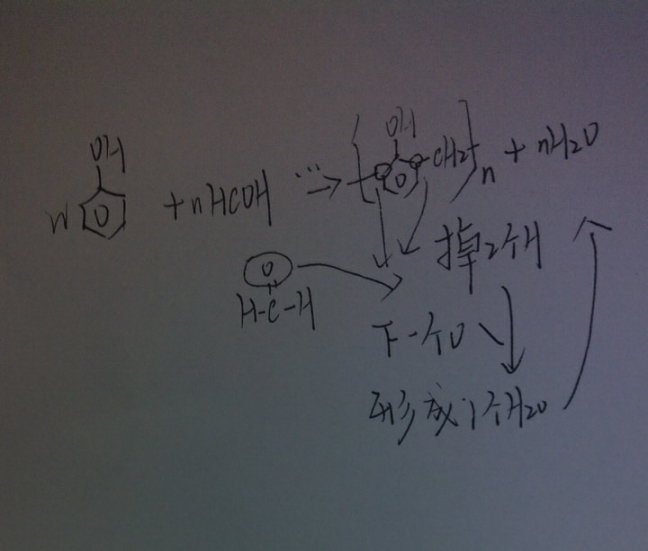 OH OH
n + nHCOH → [ CH2 ]n + nH2O
O
H-C-H
掉2个H
下一个O
形成1个H2O